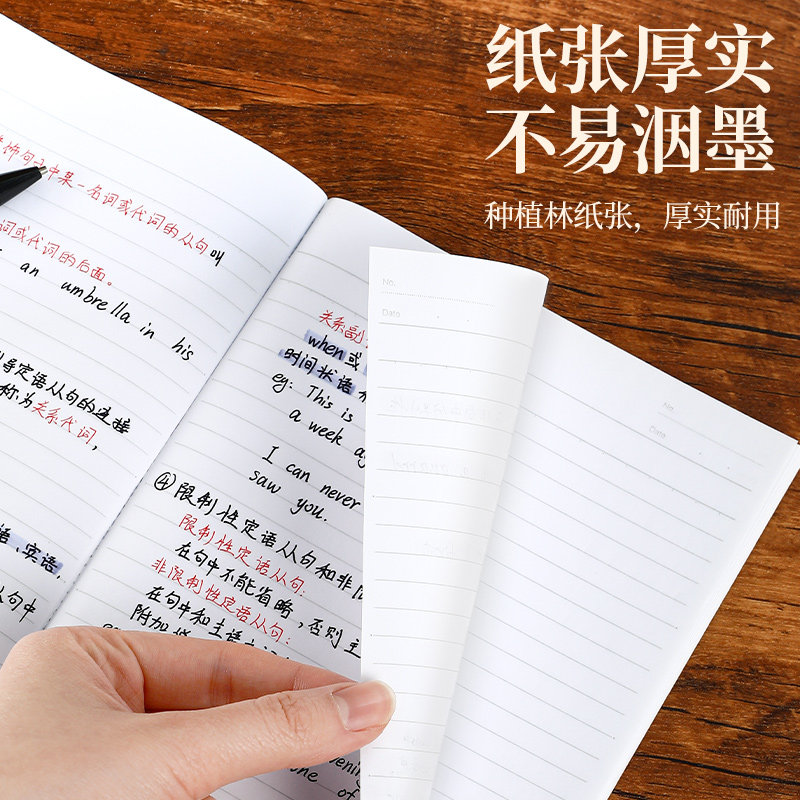 纸张厚实
不易洇墨
种植林纸张，厚实耐用
饰句子中某一名词或代词的从句叫
词或代词的后面。
an umbrella in his
导定语从句的连接
称为关系代词，
宾语，
从句中
No.
Date
关系副
when或
时间状语
eg: This is
a week
I can never
saw you.
④限制性定语从句和非限
限制性定语从句：
在句中不能省略，否则主
非限制性定语从句：
在句中和主语
附加
one of
No.
Date